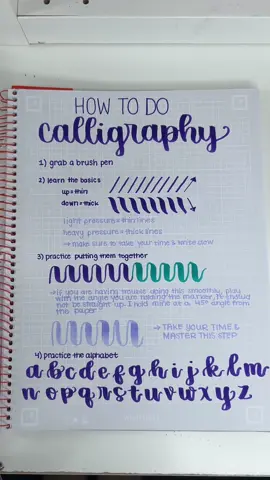 HOW TO DO
calligraphy
1) grab a brush pen
2) learn the basics
up = thin
down = thick
light pressure = thin lines
heavy pressure = thick lines
→ make sure to take your time & write slow
3) practice putting them together
→ if you are having trouble doing this smoothly, play
with the angle you are holding the marker, it should
not be straight up. I hold mine at a 45° angle from
the paper
→ TAKE YOUR TIME &
MASTER THIS STEP
4) practice the alphabet
a b c d e f g h i j k l m
n o p q r s t u v w x y z